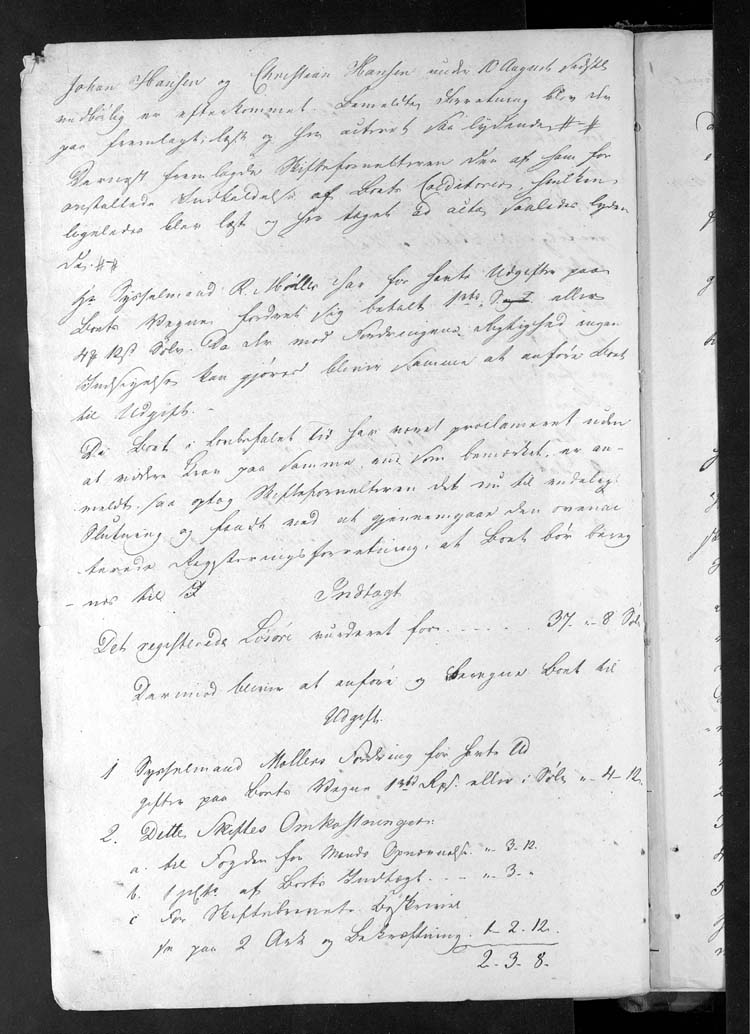 Johan Hansen og Christian Hansen under 10 August sidstl.
vedbørlig er efterkommet. Bemeldte Forretning blev der
paa fremlagt, læst og her acteret saa lydende ##
Dernæst fremlagde Skifteforvalteren den af ham for
anstaltede Indkaldelse af Boets Creditorer, hvilken
ligeledes blev læst og her taget ad acta saaledes lyden
de. ##
Hr Sysselmand R. Møller har for havte Udgifter paa
Boets Vegne fordret sig betalt 1rbd eller
4 12 Sølv. Da der mod Fordringens Rigtighed ingen
Indsigelse kan gjøres bliver samme at anføre Boet
til Udgift. –
Da Boet i lovbefalet tid har været proclameret uden
at videre Krav paa samme, end som bemærket, er an-
meldt, saa optog Skifteforvalteren det nu til endelig
Slutning og fandt ved at gjennemgaae den ovenac
terede Registeringsforretning, at Boet bør bereg
nes til
Indtægt
Det registerede Løsøre vurderet for . . . . . . 37 – " – 8 Sølv
Derimod bliver at anføre og beregne Boet til
Udgift.
1 Sysselmand Møllers Fordring for havte Ud
gifter paa Boets Vegne 1rbd eller i Sølv " – 4 – 12
2. Dette Skiftes Omkostninger:
a. til Fogden for Mænds Opnævnelse. " – 3 – 12.
b. 1 pCto af Boets Indtægt . . – " – 3 – "
c For Skiftebrevets Beskrivel
se paa 2 Ark og Bekræftning. 1 – 2 . 12.
2 – 3 – 8.